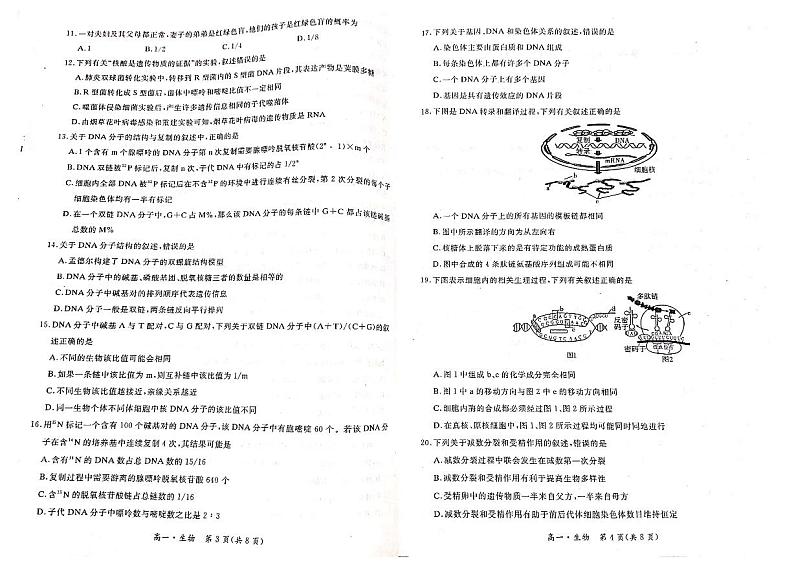 11.一对夫妇及其父母都正常,妻子的弟弟是红绿色盲,他们的孩子是红绿色盲的概率为
A.1 B.1/2 C.1/4 D.1/8
12.下列有关“核酸是遗传物质的证据”的实验,叙述错误的是
A.肺炎双球菌转化实验中,转移到R型菌内的S型菌DNA片段,其表达产物是荚膜多糖
B.R型菌转化成S型菌后,菌体中嘌呤和嘧啶比值不一定相同
C.噬菌体侵染细菌实验后,产生许多遗传信息相同的子代噬菌体
D.由烟草花叶病毒感染和重建实验可知,烟草花叶病毒的遗传物质是RNA
13.关于DNA分子的结构与复制的叙述中,正确的是
A.1个含有m个腺嘌呤的DNA分子第n次复制需要腺嘌呤脱氧核苷酸(2ⁿ-1)×m个
B.DNA双链被³²P标记后,复制n次,子代DNA中有标记的占1/2ⁿ
C.细胞内全部DNA被³²P标记后在不含³²P的环境中进行连续有丝分裂,第2次分裂的每个子
细胞染色体均有一半有标记
D.在一个双链DNA分子中,G+C占M%,那么该DNA分子的每条链中G+C都占该链碱基
总数的M%
14.关于DNA分子结构的叙述,错误的是
A.孟德尔构建了DNA分子的双螺旋结构模型
B.DNA分子中的碱基、磷酸基团、脱氧核糖三者的数量是相等的
C.DNA分子中碱基对的排列顺序代表遗传信息
D.DNA分子一般是双链,两条链反向平行排列
15.DNA分子中碱基A与T配对,C与G配对,下列关于双链DNA分子中(A+T)/(C+G)的叙
述正确的是
A.不同的生物该比值可能会相同
B.如果一条链中该比值为m,则互补链中该比值为1/m
C.不同生物该比值越接近,亲缘关系越近
D.同一生物个体不同体细胞中核DNA分子的该比值不同
16.用¹⁵N标记一个含有100个碱基对的DNA分子,该DNA分子中有胞嘧啶60个。若该DNA分
子在含¹⁴N的培养基中连续复制4次,其结果可能是
A.含有¹⁴N的DNA数占总DNA数的15/16
B.复制过程中需要游离的腺嘌呤脱氧核苷酸640个
C.含¹⁵N的脱氧核苷酸链占总链数的1/16
D.子代DNA分子中嘌呤数与嘧啶数之比是2:3
高一·生物 第3页(共8页)
17.下列关于基因、DNA和染色体关系的叙述,错误的是
A.染色体主要由蛋白质和DNA组成
B.每条染色体上都有许多个DNA分子
C.一个DNA分子上有多个基因
D.基因是具有遗传效应的DNA片段
18.下图是DNA转录和翻译过程,下列有关叙述正确的是
复制
转录
mRNA
细胞核
b
a
A.一个DNA分子上的所有基因的模板链都相同
B.图中所示翻译的方向为从左向右
C.核糖体上脱落下来的是有特定功能的成熟蛋白质
D.图中合成的4条肽链氨基酸序列组成可能不相同
19.下图表示细胞内的相关生理过程,下列有关叙述正确的是
多肽链
反密
码子
密码子
图1
图2
A.图1中组成b、c的化学成分完全相同
B.图1中a的移动方向与图2中e的移动方向相同
C.细胞内酶的合成都必须经过图1、图2所示过程
D.在真核、原核细胞中,图1、图2所示过程均可能同时同地进行
20.下列关于减数分裂和受精作用的叙述,错误的是
A.减数分裂过程中联会发生在减数第一次分裂
B.减数分裂和受精作用有利于提高生物多样性
C.受精卵中的遗传物质一半来自父方,一半来自母方
D.减数分裂和受精作用有助于前后代体细胞染色体数目维持恒定
高一·生物 第4页(共8页)